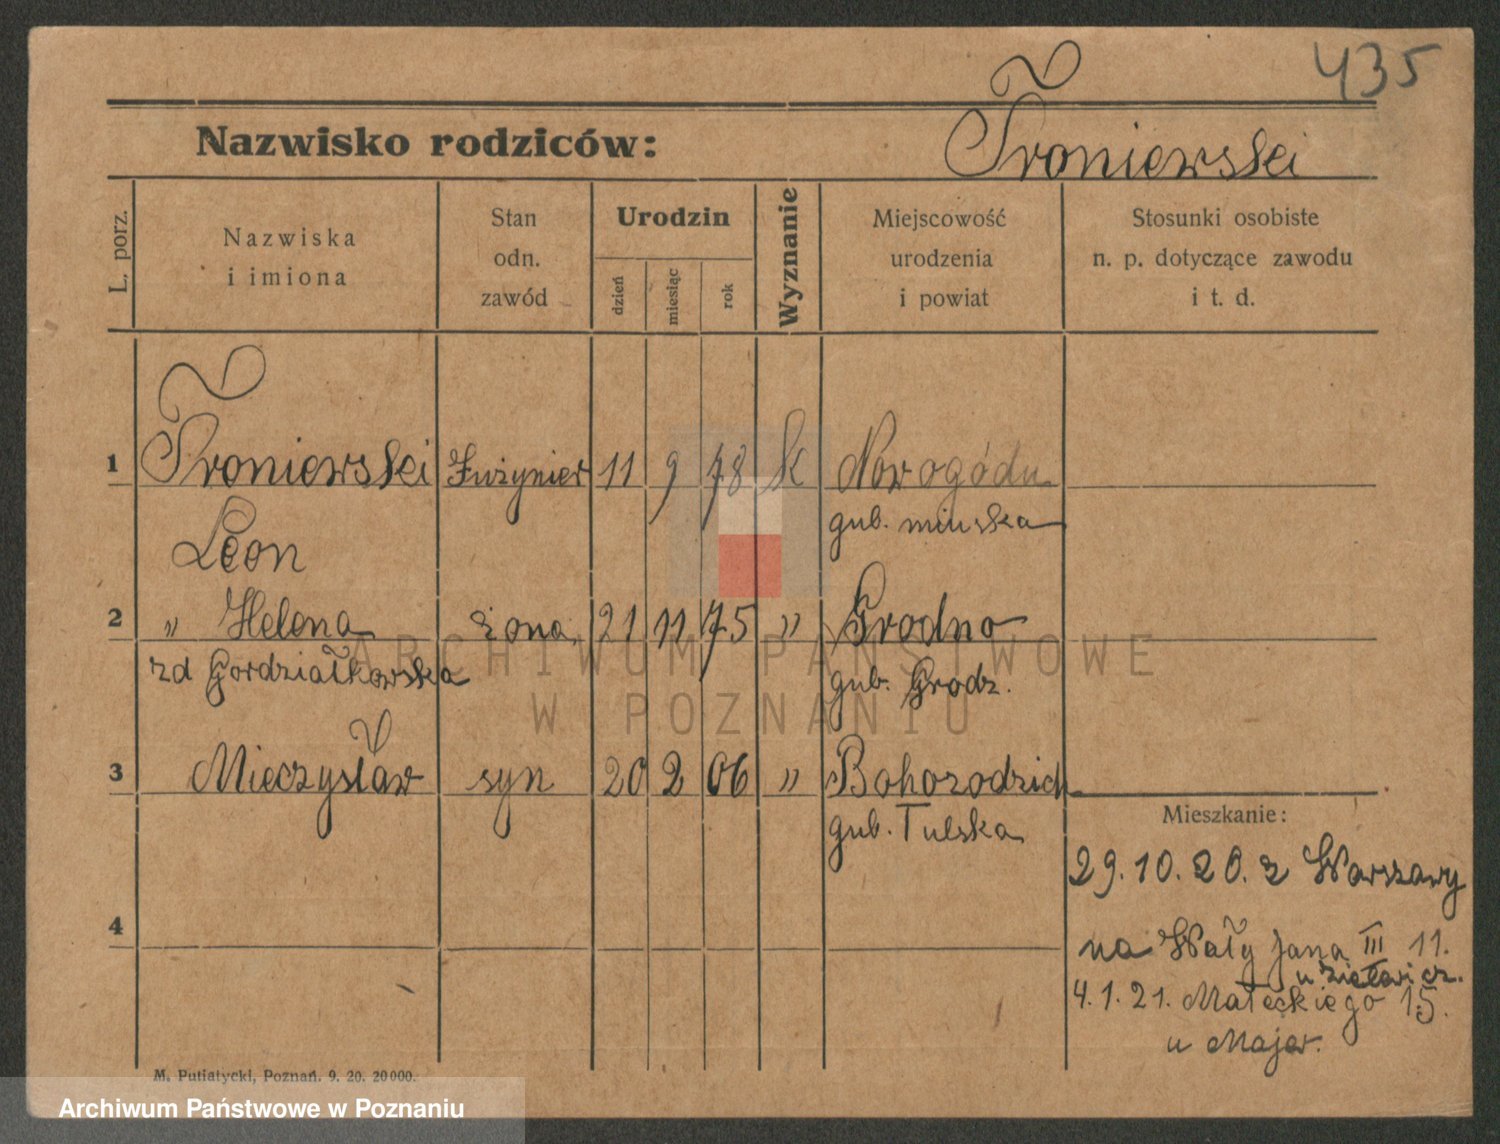 435
Nazwisko rodziców: Troniewski
L. porz.
Nazwiska
i imiona
Stan
odn.
zawód
Urodzin
dzień
miesiąc
rok
Wyznanie
Miejscowość
urodzenia
i powiat
Stosunki osobiste
n. p. dotyczące zawodu
i t. d.
1 Troniewski Inżynier 11 9 78 K Nowogódu
gub. minska
Leon
2 " Helena żona, 21 11 75 " Grodno
zd Gordziałkowska gub. Grodz.
3 Mieczysław syn 20 2 06 " Bohorodzick
gub. Tulska
Mieszkanie:
29.10.20. z Warszawy
4
na Wały Jana III 11.
u
4.1.21. Małeckiego 15.
u Majer.
M. Putiatycki, Poznań. 9. 20. 20000.
ARCHIWUM PAŃSTWOWE
W POZNANIU
Archiwum Państwowe w Poznaniu